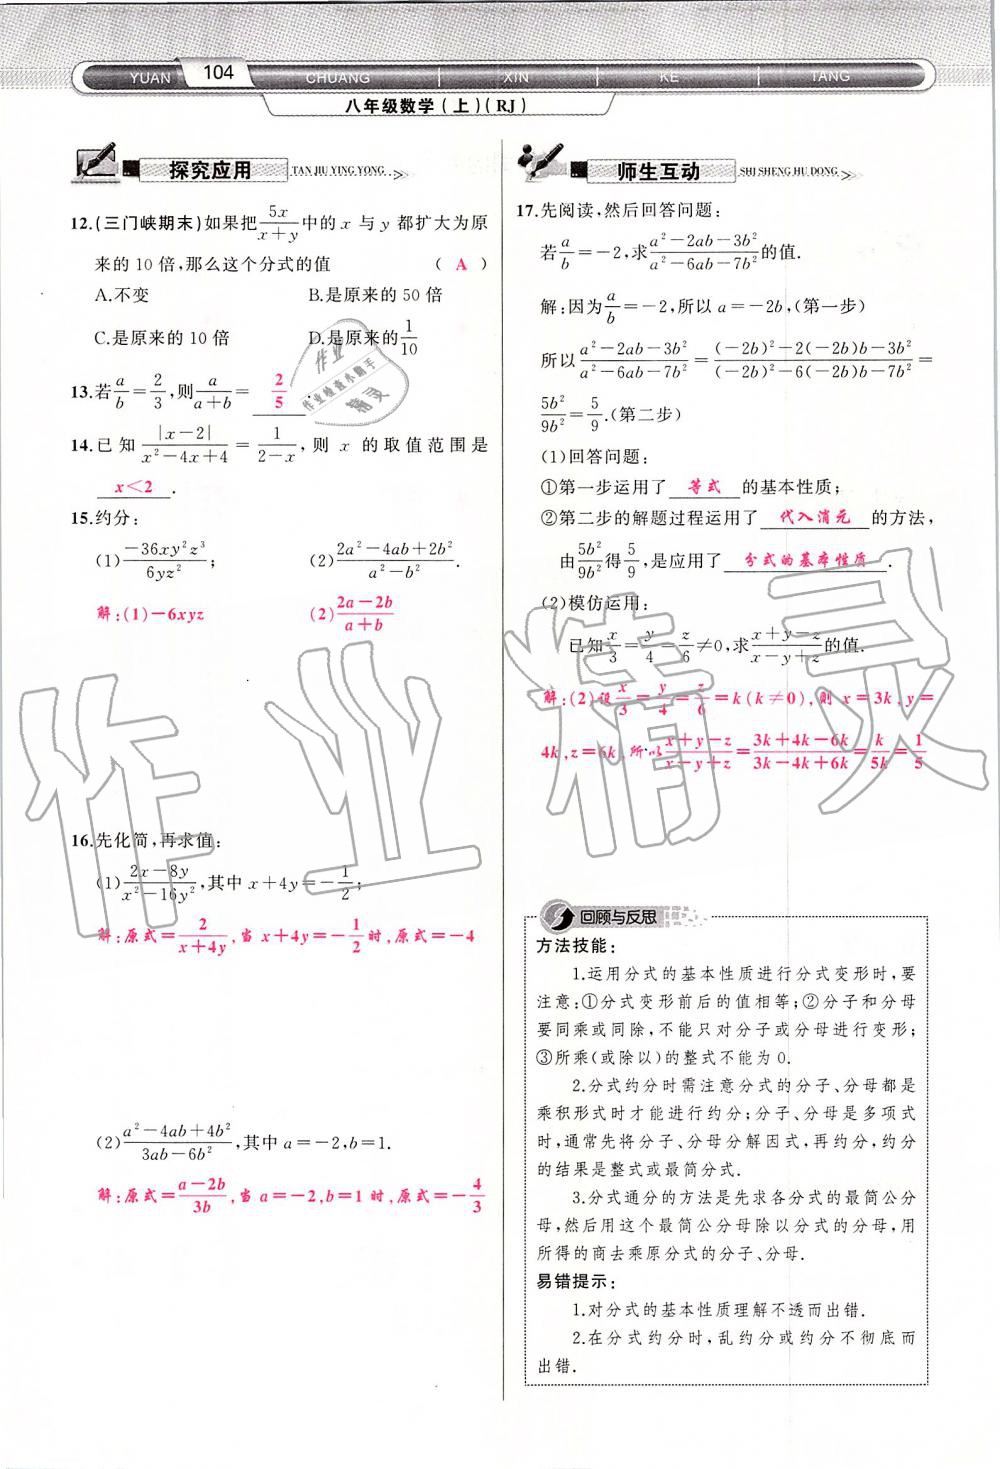 104
YUAN CHUANG XIN KE TANG
八年级数学(上)(RJ)
探究应用 TAN JIU YING YONG
12.(三门峡期末)如果把5x/(x+y)中的 x 与 y 都扩大为原
来的 10 倍,那么这个分式的值 ( A )
A.不变 B.是原来的 50 倍
C.是原来的 10 倍 D.是原来的1/10
13.若a/b=2/3,则a/(a+b)= 2/5
14.已知|x-2|/(x²-4x+4)=1/(2-x),则 x 的取值范围是
x<2 .
15.约分:
(1)-36xy²z³/6yz²; (2)(2a²-4ab+2b²)/(a²-b²).
解:(1)-6xyz (2)(2a-2b)/(a+b)
16.先化简,再求值:
(1)(2x-8y)/(x²-16y²),其中 x+4y=-1/2;
解:原式=2/(x+4y),当 x+4y=-1/2时,原式=-4
(2)(a²-4ab+4b²)/(3ab-6b²),其中 a=-2,b=1.
解:原式=(a-2b)/3b,当 a=-2,b=1 时,原式=-4/3
师生互动 SHI SHENG HU DONG
17.先阅读,然后回答问题:
若a/b=-2,求(a²-2ab-3b²)/(a²-6ab-7b²)的值.
解:因为a/b=-2,所以 a=-2b,(第一步)
所以(a²-2ab-3b²)/(a²-6ab-7b²)=((-2b)²-2(-2b)b-3b²)/((-2b)²-6(-2b)b-7b²)=
5b²/9b²=5/9.(第二步)
(1)回答问题:
①第一步运用了 等式 的基本性质;
②第二步的解题过程运用了 代入消元 的方法,
由5b²/9b²得5/9,是应用了 分式的基本性质 .
(2)模仿运用:
已知x/3=y/4=z/6≠0,求(x+y-z)/(x-y+z)的值.
解:(2)设x/3=y/4=z/6=k(k≠0),则 x=3k,y=
4k,z=6k,所以(x+y-z)/(x-y+z)=(3k+4k-6k)/(3k-4k+6k)=k/5k=1/5
回顾与反思
方法技能:
1.运用分式的基本性质进行分式变形时,要
注意:①分式变形前后的值相等;②分子和分母
要同乘或同除,不能只对分子或分母进行变形;
③所乘(或除以)的整式不能为 0.
2.分式约分时需注意分式的分子、分母都是
乘积形式时才能进行约分;分子、分母是多项式
时,通常先将分子、分母分解因式,再约分,约分
的结果是整式或最简分式.
3.分式通分的方法是先求各分式的最简公分
母,然后用这个最简公分母除以分式的分母,用
所得的商去乘原分式的分子、分母.
易错提示:
1.对分式的基本性质理解不透而出错.
2.在分式约分时,乱约分或约分不彻底而
出错.
作业精灵
作业
作业检查小助手
精灵